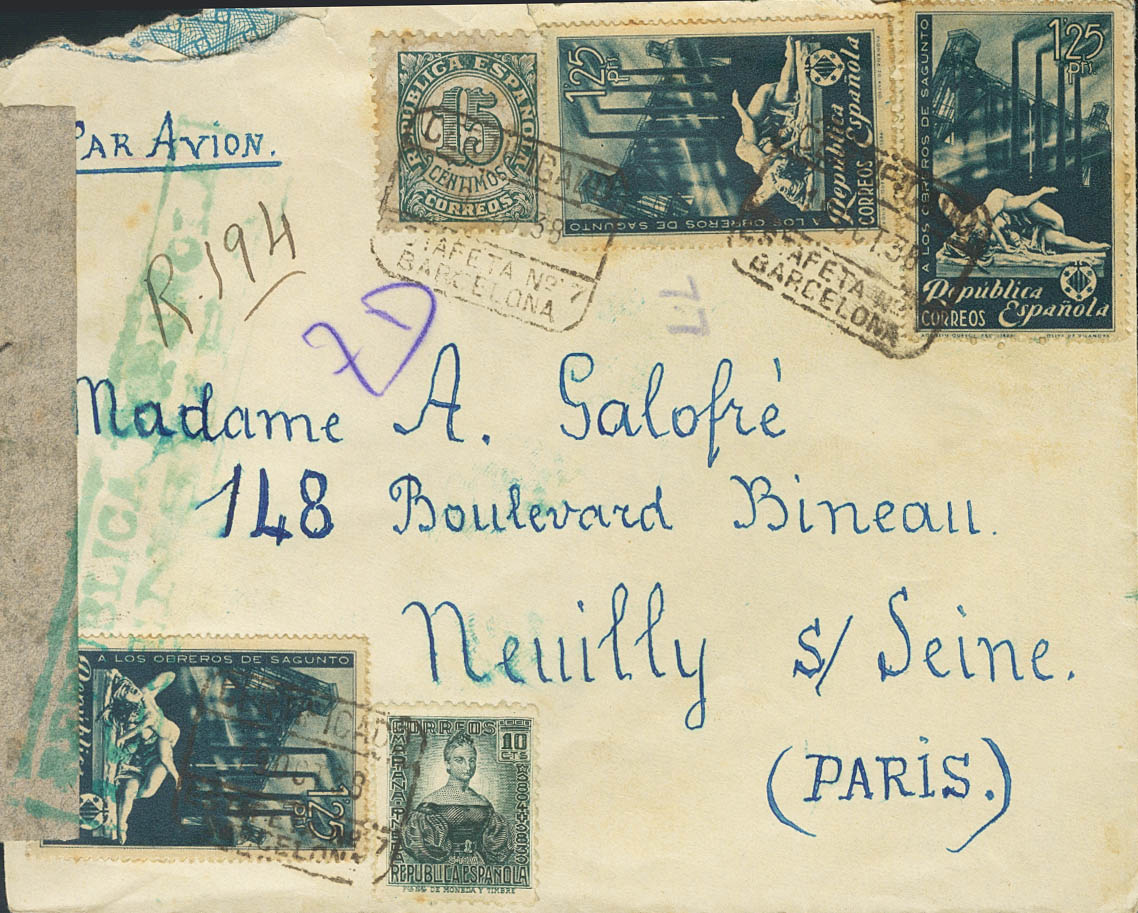 PAR AVION.
R. 194
REPUBLICA ESPAÑOLA
15
CENTIMOS
CORREOS
1'25 PTS
A LOS OBREROS DE SAGUNTO
República Española
CORREOS
1'25 PTS
A LOS OBREROS DE SAGUNTO
República Española
CORREOS
ESTAFETA Nº 7
BARCELONA
OCT. 38
ESTAFETA Nº 7
BARCELONA
77
Madame A. Galofré
148 Boulevard Bineau.
Neuilly s/ Seine.
(PARÍS.)
A LOS OBREROS DE SAGUNTO
República
1'25 PTS
CORREOS
10 CTS
MARIANA PINEDA
REPUBLICA ESPAÑOLA